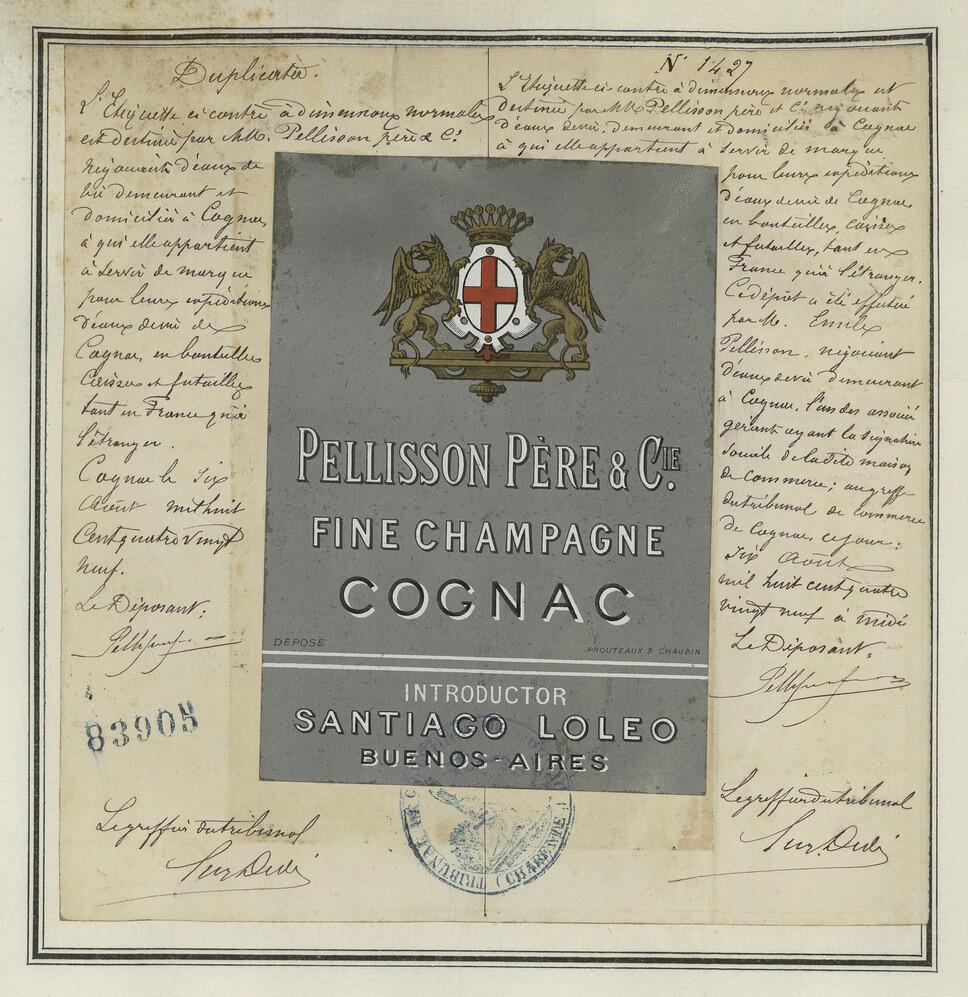 Duplicata.
L'Etiquette ci contre à dimensions normales
est destinée par MM. Pellisson père & Cie
négociants d'eaux de
vie demeurant et
domiciliés à Cognac,
à qui elle appartient
à servir de marque
pour leurs expéditions
d'eaux de vie de
Cognac, en bouteilles
Caisses et futailles
tant en France qu'à
l'étranger.
Cognac le Six
Août mil huit
Cent quatre vingt
neuf.
Le Déposant:
83905
Le greffier du tribunal
N° 1427
L'Etiquette ci contre à dimensions normales est
destinée par MM. Pellisson père et Cie négociants
d'eaux de vie, demeurant et domiciliés à Cognac
à qui elle appartient à servir de marque
pour leurs expéditions
d'eaux de vie de Cognac,
en bouteilles, caisses
et futailles, tant en
France qu'à l'étranger.
Ce dépôt a été effectué
par M. Emile
Pellisson, négociant
d'eaux de vie demeurant
à Cognac, l'un des associés
gérant ayant la signature
sociale de la dite maison
de Commerce; au greffe
du tribunal de Commerce
de Cognac, ce jour:
Six Août
mil huit cent quatre
vingt neuf à midi
Le Déposant:
Le greffier du tribunal
PELLISSON PÈRE & CIE.
FINE CHAMPAGNE
COGNAC
DÉPOSÉ
PROUTEAUX & CHAUBIN
INTRODUCTOR
SANTIAGO LOLEO
BUENOS-AIRES
TRIBUNAL DE
(CHARENTE)